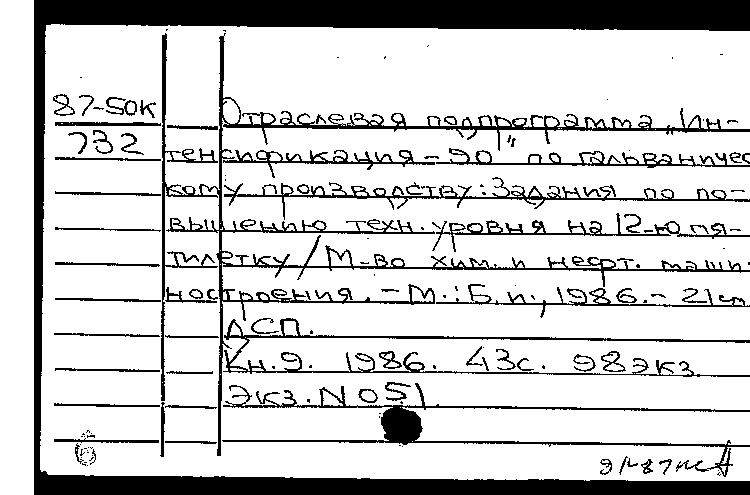 87-50К
732
Отраслевая подпрограмма „Ин-
тенсификация-90" по гальваничес
кому производству: Задания по по-
вышению техн. уровня на 12-ю пя-
тилетку / М-во хим. и нефт. маши-
ностроения. - М.: Б.и., 1986. - 21см
ДСП.
Кн.9. 1986. 43с. 98экз.
Экз. № 051.
б